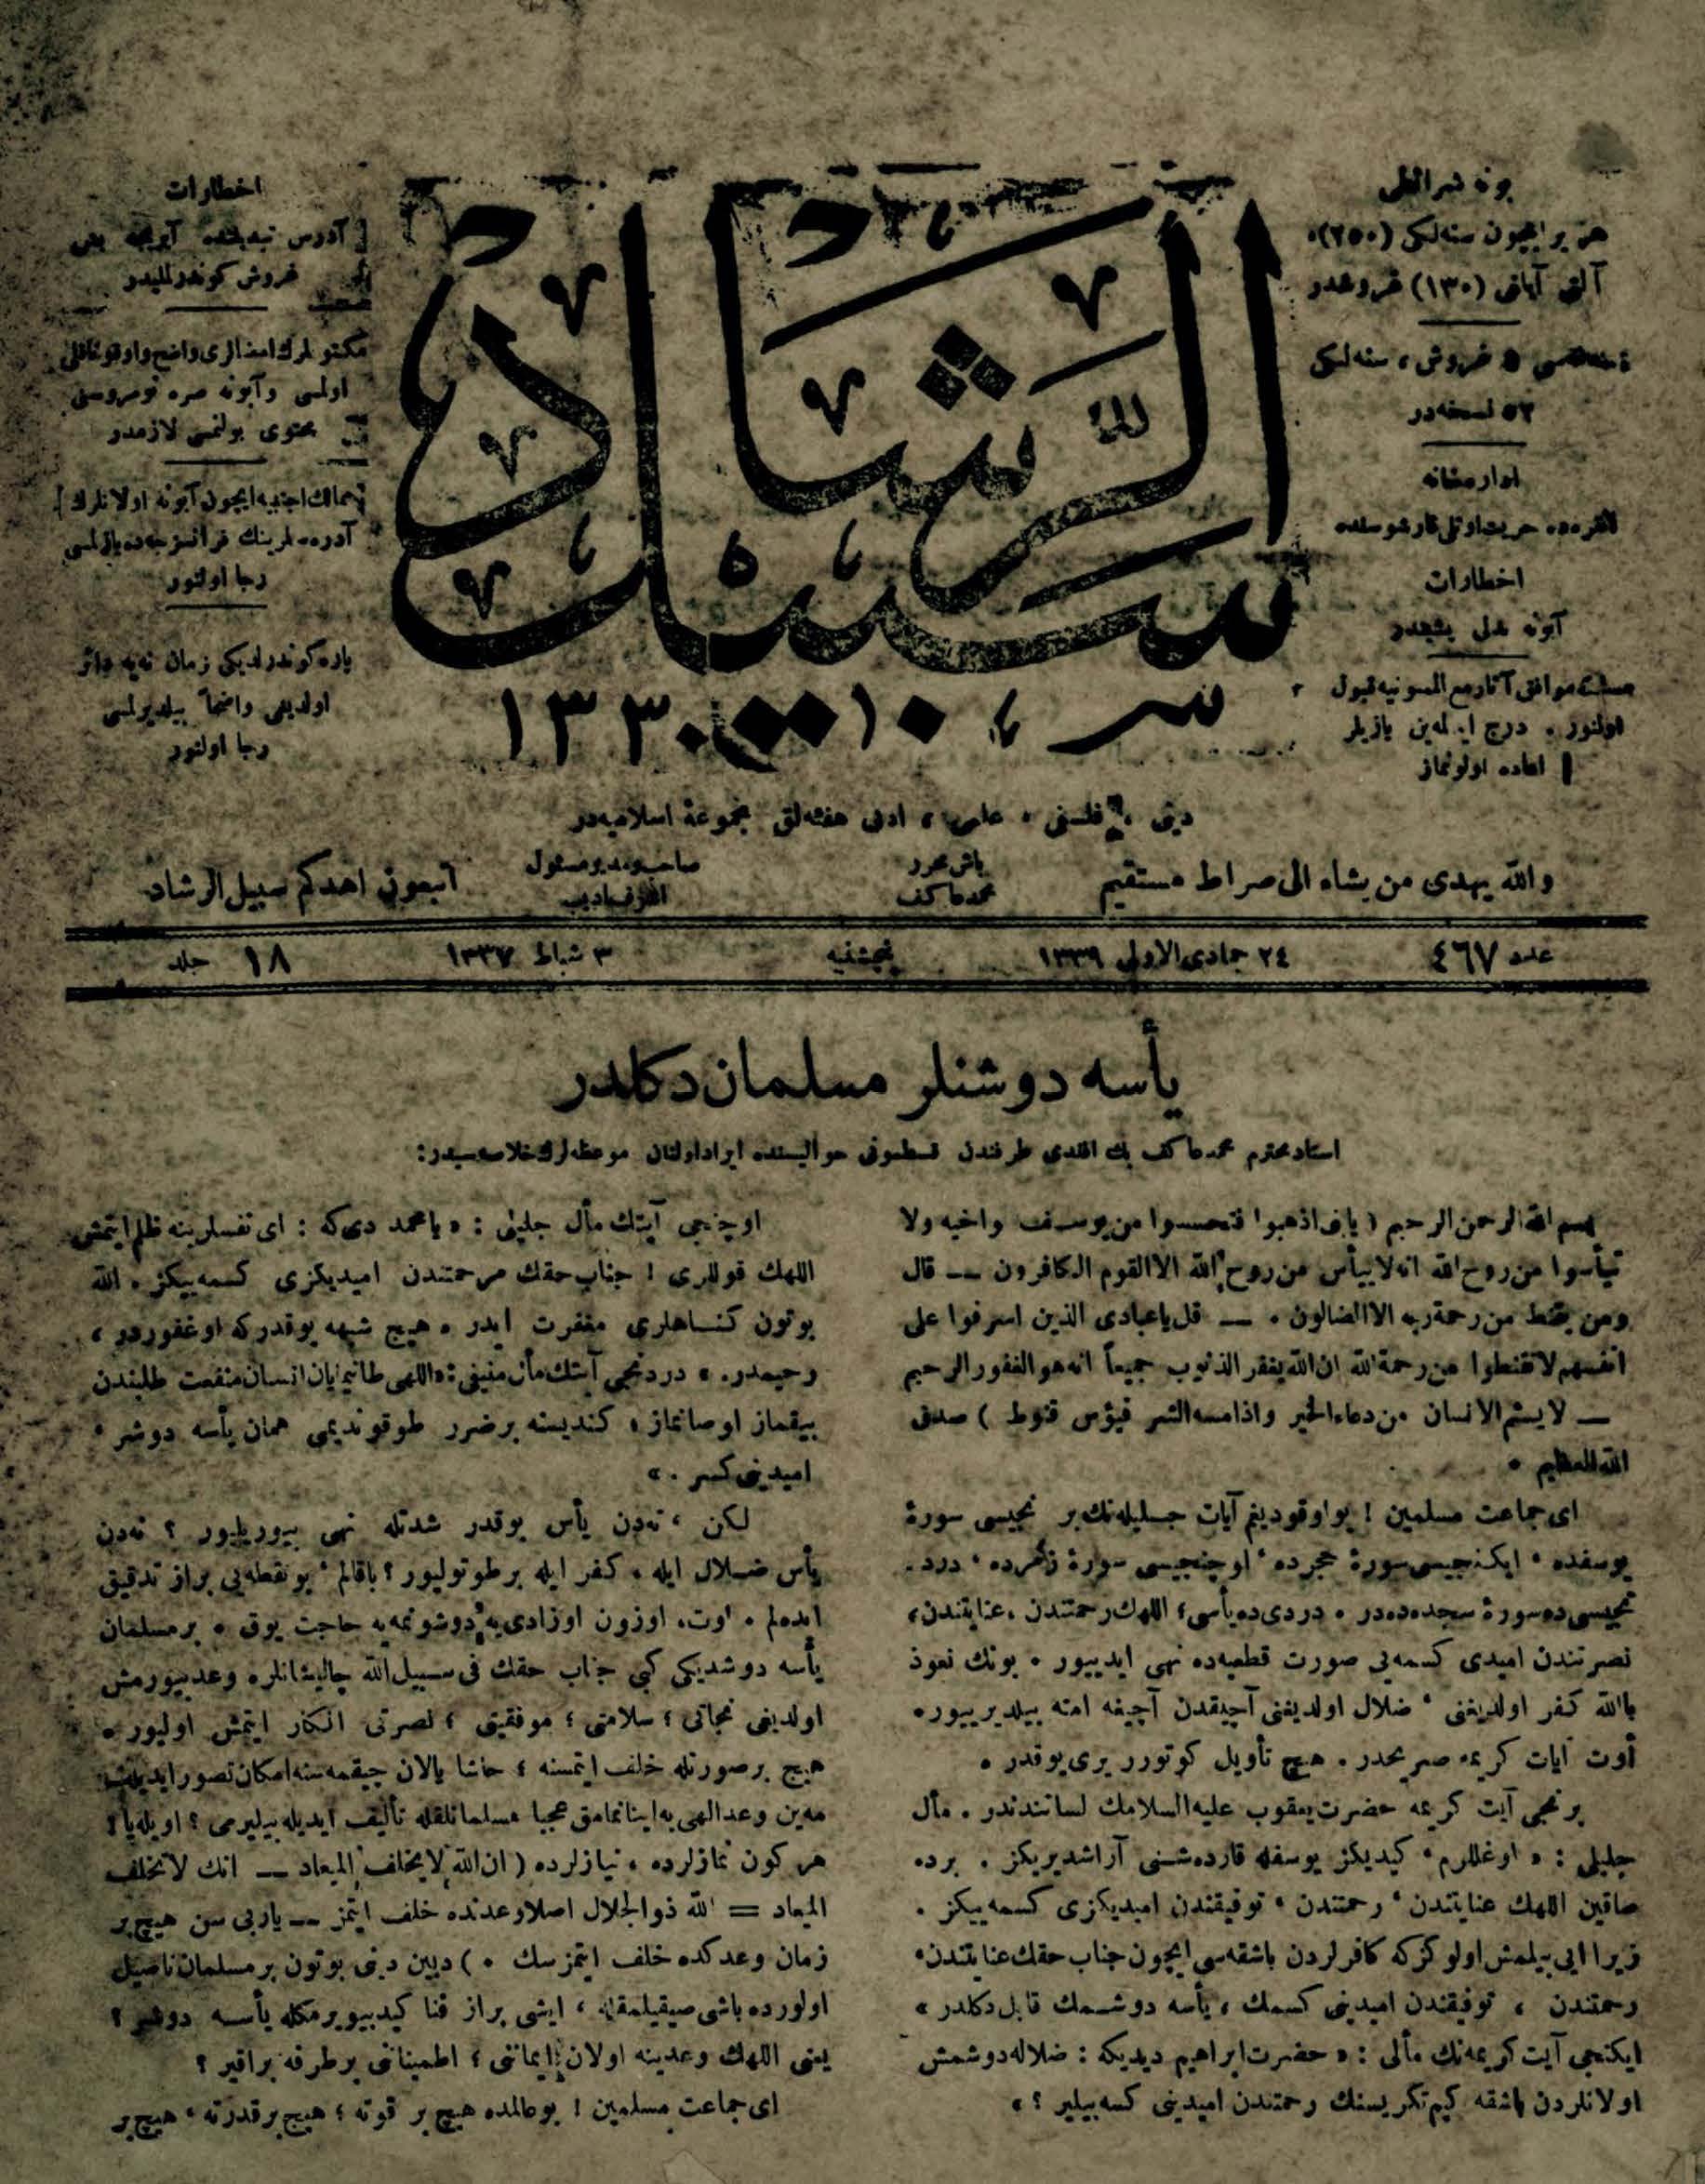 بونه شرائطی
هر یر ایچون سنه‌لكی (۲۵۰)،
آلتی آیلغی (۱۳۰) غروشدر
نسخه‌سی ٥ غروش، سنه‌لكی
٥٢ نسخه‌در
اداره‌خانه
آنقره‌ده حریت اوتلی قارشوسنده
اخطارات
آبونه بدلی پشیندر
مسلكه موافق آثار مع الممنونیه قبول
اولنور . درج ایدلمه‌ین یازیلر
اعاده اولونماز
سبیل الرشاد
سر ١٣٣٠
اخطارات
آدرس تبدیلنده آیریجه بش
غروش كوندرلملیدر
مكتوبلرك امضالری واضح واوقوناقلی
اولمسی وآبونه صره نومروسنی
محتوی بولنمسی لازمدر
ممالك اجنبیه ایچون آبونه اولانلرك
آدرسلرینك فرانسزجه‌ده یازلمسی
رجا اولنور
پاره كوندرلدیكی زمان نه‌یه دائر
اولدیغی واضحاً بیلدیرلمسی
رجا اولنور
دینی ، فلسفی ، علمی ، ادبی هفته‌لق مجموعهٔ اسلامیه‌در
والله یهدی من یشاء الی صراط مستقیم
باش محرر
محمد عاكف
صاحب ومدیر مسئول
اشرف ادیب
اتبعون اهدكم سبیل الرشاد
عدد ٤٦٧
٢٤ جمادی الاولی ١٣٣٩
پنجشنبه
٣ شباط ١٣٣٧
جلد ١٨
یأسه دوشنلر مسلمان دكلدر
استاد محترم محمد عاكف بك افندی طرفندن قسطمونی حوالیسنده ایراد اولنان موعظه‌لرك خلاصه‌سیدر:
بسم الله الرحمن الرحیم ( یابنی اذهبوا فتحسسوا من یوسف واخیه ولا
تیأسوا من روح الله انه لا ییأس من روح الله الا القوم الكافرون — قال
ومن یقنط من رحمة ربه الا الضالون . — قل یاعبادی الذین اسرفوا علی
انفسهم لا تقنطوا من رحمة الله ان الله یغفر الذنوب جمیعاً انه هو الغفور الرحیم
— لا یسئم الانسان من دعاء الخیر واذا مسه الشر فیؤس قنوط ) صدق
الله العظیم .
ای جماعت مسلمین ! بو اوقودیغم آیات جلیله‌نك بر نجیسی سورهٔ
یوسفده ، ایكنجیسی سورهٔ حجرده ، اوچنجیسی سورهٔ زمرده ، درد.
نجیسی ده سورهٔ سجده‌ده‌در . دردی ده یأسی ؛ اللهك رحمتندن ، عنایتندن،
نصرتندن امیدی كسمه‌یی صورت قطعیه‌ده نهی ایدییور . بونك نعوذ
بالله كفر اولدیغنی ، ضلال اولدیغنی آچیقدن آچیغه امته بیلدیرییور.
أوت آیات كریمه صریحدر . هیچ تأویل كوتورر یری یوقدر .
برنجی آیت كریمه حضرت یعقوب علیه السلامك لسانندندر . مآل
جلیلی : « اوغللرم ، كیدیكز یوسفله قارده‌شنی آراشدیریكز . برده
صاقین اللهك عنایتندن ، رحمتندن ، توفیقندن امیدیكزی كسمه‌ییكز .
زیرا ایی بیلمش اولوكزكه كافرلردن باشقه‌سی ایچون جناب حقك عنایتندن،
رحمتندن ، توفیقندن امیدینی كسمك ، یأسه دوشمك قابل دكلدر »
ایكنجی آیت كریمه‌نك مآلی : « حضرت ابراهیم دیدیكه : ضلاله دوشمش
اولانلردن باشقه كیم تكریسنك رحمتندن امیدینی كسه‌بیلیر ؟ »
اوچنجی آیتك مآل جلیلی : « یامحمد دی‌كه : ای نفسلرینه ظلم ایتمش
اللهك قوللری ! جناب حقك مرحمتندن امیدیكزی كسمه‌ییكز . الله
بوتون كناهلری مغفرت ایدر . هیچ شبهه یوقدركه او غفوردر ،
رحیمدر. » دردنجی آیتك مآل منیفی : « اللهی طانیمایان انسان منفعت طلبندن
بیقماز اوصانماز ، كندیسنه بر ضرر طوقوندیمی همان یأسه دوشر ،
امیدینی كسر . »
لكن ، نه‌دن یأس بوقدر شدتله نهی بیوریلیور ؟ نه‌دن
یأس ضلال ایله ، كفر ایله بر طوتولیور ؟ باقالم ، بو نقطه‌یی براز تدقیق
ایده‌لم . اوت، اوزون اوزادی‌یه دوشونمه‌یه حاجت یوق . بر مسلمان
یأسه دوشدیكی كبی جناب حقك فی سبیل الله چالیشانلره وعد بیورمش
اولدیغی نجاتی ؛ سلامتی ؛ موفقیتی ؛ نصرتی انكار ایتمش اولیور .
هیچ بر صورتله خلف ایتمسنه ؛ حاشا یالان چیقمه‌سنه امكان تصور ایدیله‌
مه‌ین وعد الهی‌یه اینانمامق عجبا مسلمانلقله تألیف ایدیله‌بیلیرمی ؟ اویله‌یا !
هر كون نمازلرده ، نیازلرده ( ان الله لا یخلف المیعاد — انك لا تخلف
المیعاد = الله ذوالجلال اصلا وعدنده خلف ایتمز — یاربی سن هیچ بر
زمان وعدكده خلف ایتمزسك . ) دیین دینی بوتون بر مسلمان ناصیل
اولورده باشی صیقیلمقله ، ایشی براز فنا كیدییویرمكله یأسه دوشر ؟
یعنی اللهك وعدینه اولان ایماننی ؛ اطمیناننی بر طرفه براقیر ؟
ای جماعت مسلمین ! بو عالمده هیچ بر قوته ؛ هیچ بر قدرته ، هیچ بر